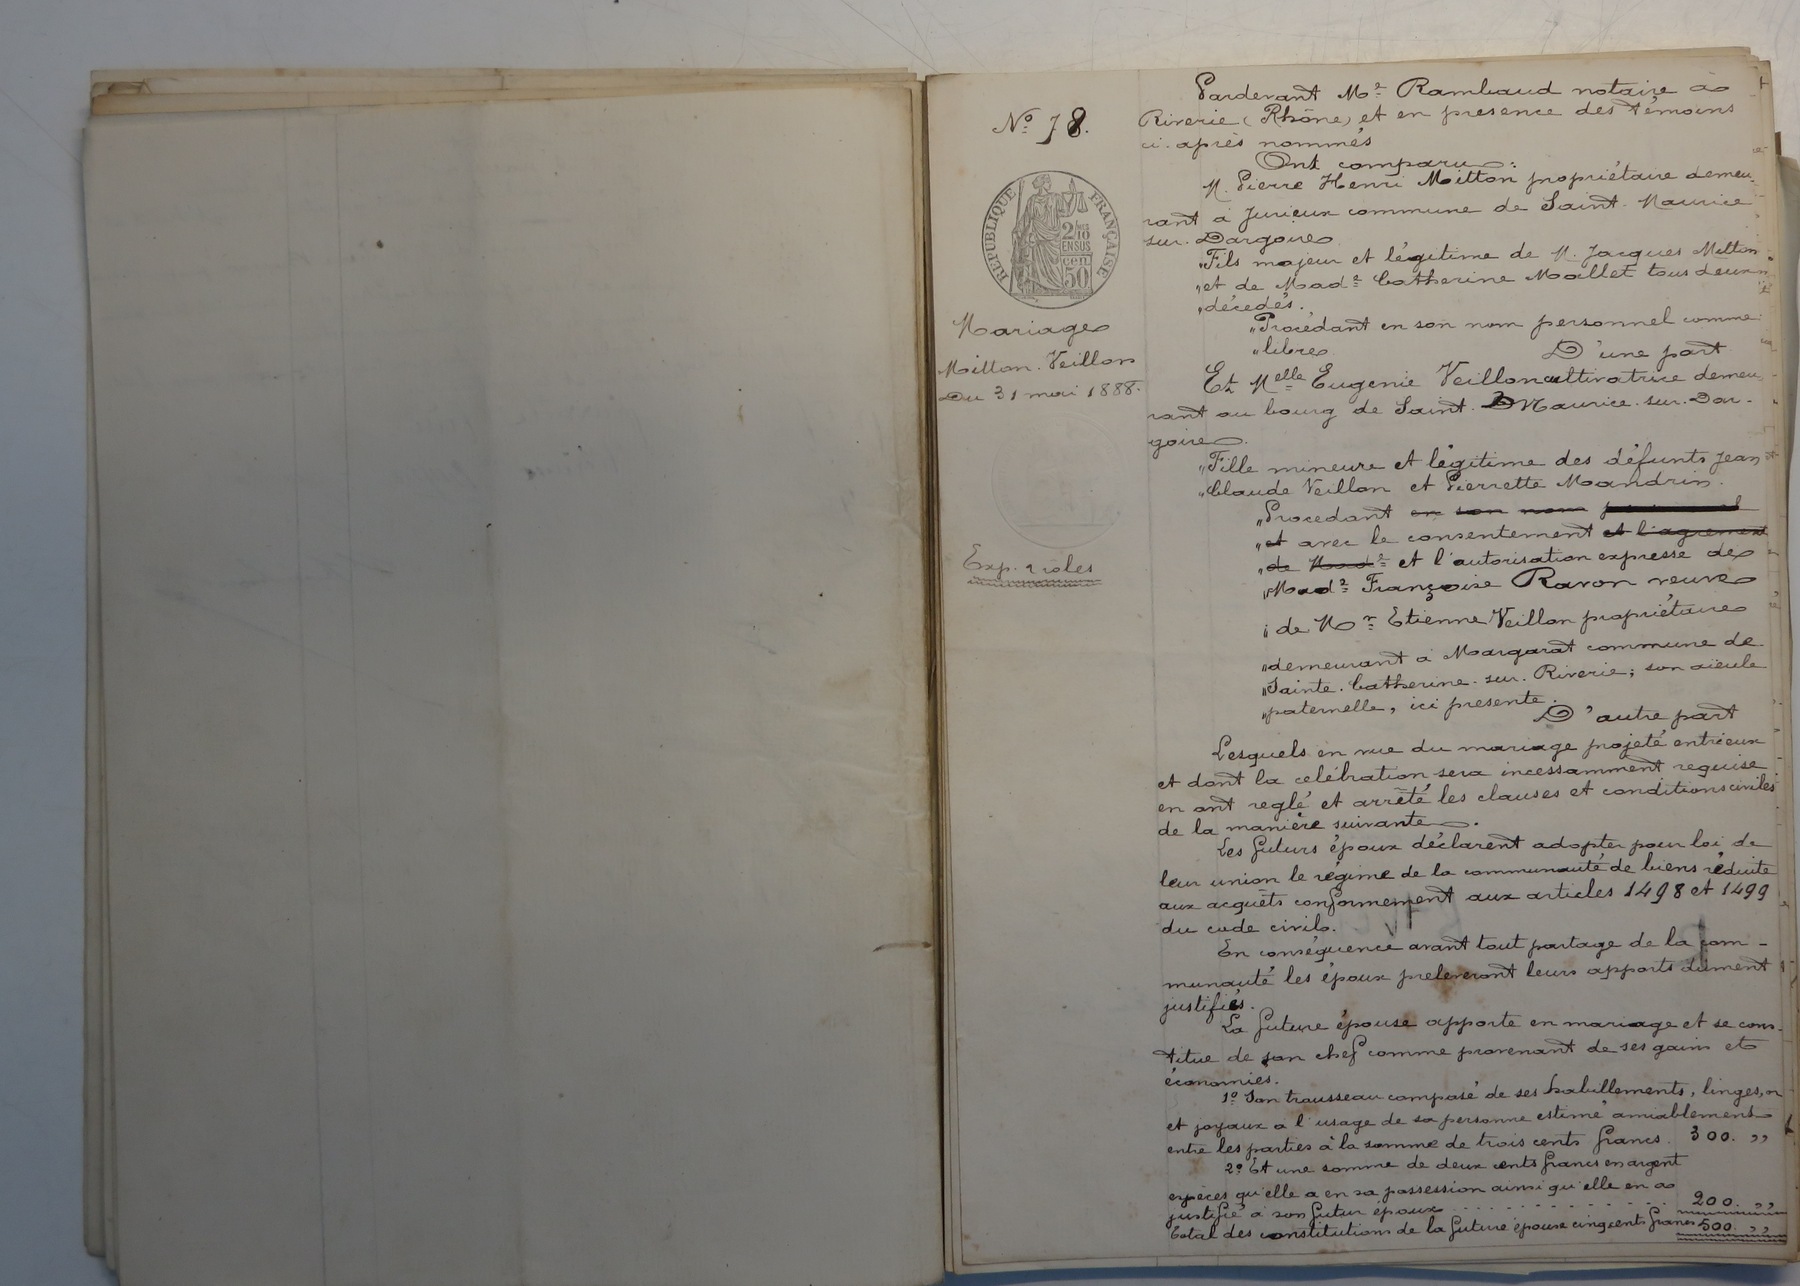 Nº 78.
RÉPUBLIQUE FRANÇAISE
2/10
EN SUS
50 cen
Mariage
Mitton. Veillon
Du 31 mai 1888.
Exp. 2 roles
Pardevant Me Rambaud notaire à
Riverie (Rhône) et en presence des témoins
ci. après nommés
Ont comparu :
M. Pierre Henri Mitton propriétaire demeu-
rant à Jurieux commune de Saint. Maurice
sur. Dargoire
"Fils majeur et légitime de M. Jacques Mitton
"et de Made Catherine Maillet tous deux
"décédés.
"Procédant en son nom personnel comme
"libre. D'une part
Et Melle Eugenie Veillon cultivatrice demeu-
rant au bourg de Saint. D Maurice. sur. Dar-
goire.
"Fille mineure et légitime des défunts Jean
"Claude Veillon et Pierrette Mandrin.
"Procedant en son nom personnel
"et avec le consentement et l'agrement
"de Made et l'autorisation expresse de
"Made Françoise Ravon veuve
"de Mr Etienne Veillon propriétaire
"demeurant à Margarat commune de
"Sainte. Catherine. sur. Riverie; son aieule
"paternelle, ici presente.
D'autre part
Lesquels en vue du mariage projeté entre eux
et dont la celébration sera incessamment requise
en ont reglé et arrêté les clauses et conditions civiles
de la manière suivante.
Les futurs époux déclarent adopter pour loi de
leur union le régime de la communauté de biens réduite
aux acquêts conformement aux articles 1498 et 1499
du code civil.
En conséquence avant tout partage de la com-
munauté les époux preleveront leurs apports dument
justifiés.
La future épouse apporte en mariage et se cons-
titue de son chef comme provenant de ses gains et
économies.
1º Son trousseau composé de ses habillements, linges,
et joyaux a l'usage de sa personne estimé amiablement
entre les parties à la somme de trois cents francs. 300. "
2º Et une somme de deux cents francs en argent
espèces qu'elle a en sa possession ainsi qu'elle en a
justifié à son futur époux . . . . . . . 200. "
Total des constitutions de la future épouse cinq cents francs 500. "